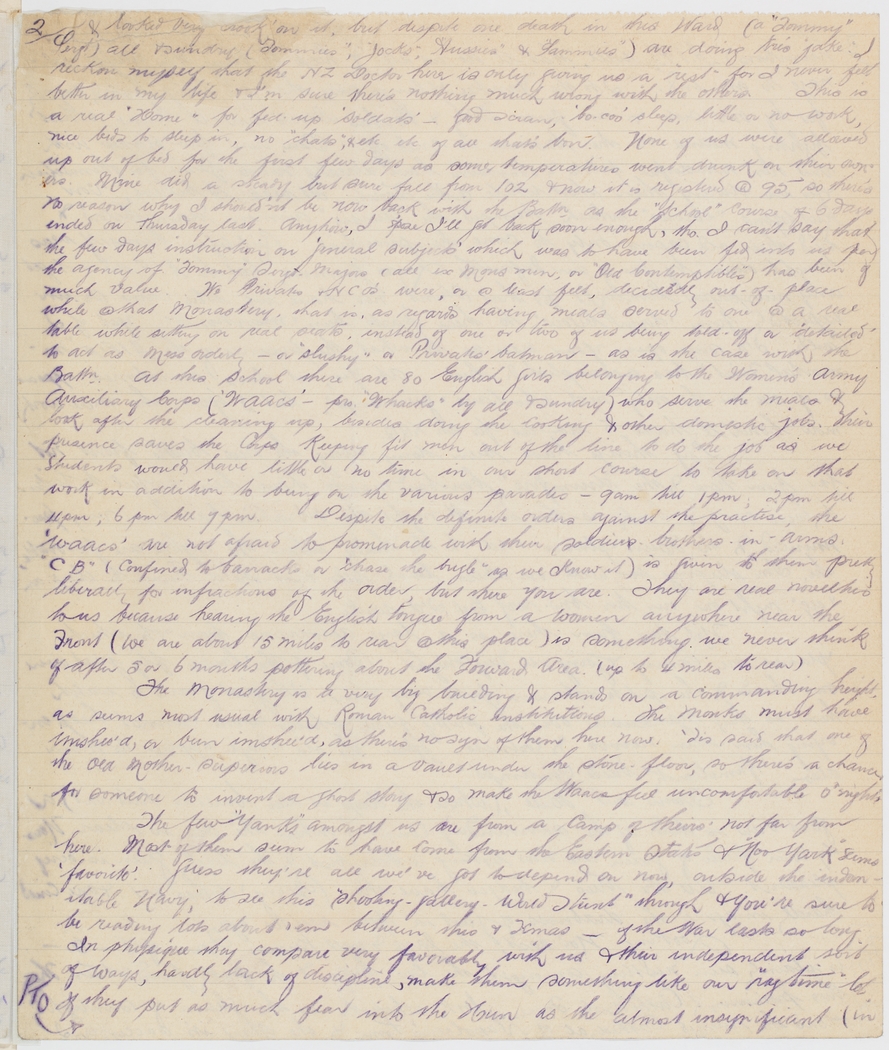 2/ & looked very crook on it, but despite one death in this Ward (a "Tommy"
Sergt) all & sundry ("Tommies", "Jocks", "Aussies" & "Sammies") are doing this 'fake'. I
reckon myself that the NZ Doctor here is only giving us a "rest" for I never felt
better in my life & I'm sure there's nothing much wrong with the others. This is
a real "Home" for fed-up 'soldats' – good kiran, bo-coo' sleep, little or no work,
nice beds to sleep in, no "chats", & etc etc of all that's bon. None of us were allowed
up out of bed for the first few days as some temperatures went drunk on their own-
ers. Mine did a steady but sure fall from 102 & now it is registered @ 95, so there's
no reason why I shouldn't be now back with the Battn. as the "School" course of 6 days
ended on Thursday last. Anyhow, I 'spose I'll get back soon enough, tho. I can't say that
the few days instruction on 'general subjects' which was to have been fed into us per
the agency of "Tommy" Sergt. Majors (all ex Mons men, or "Old Contemptibles") has been of
much value. We Privates & NCOs were, or @ least felt, decidedly out-of-place
while @ that Monastery, that is, as regards having meals served to one @ a real
table while sitting on real seats, instead of one or two of us being told-off or 'detailed'
to act as Mess orderly – or "slushy" or Privates' batman – as is the case with the
Battn. At this School there are 80 English girls belonging to the Women's Army
Auxiliary Corps ('WAACs' – pro. "Whacks" by all & sundry) who serve the meals &
look after the cleaning up, besides doing the cooking & other domestic jobs. Their
presence saves the Corps keeping fit men out of the line to do the job as we
students would have little or no time in our short course to take on that
work in addition to being on the various parades – 9am till 1pm; 2pm till
4pm; 6pm till 7pm. Despite the definite orders against the practise, the
'Waacs' are not afraid to promenade with their soldiers-brothers-in-arms.
"CB" (Confined to barracks or "Chase the bugle" as we know it) is given to them pretty
liberally for infractions of the order, but there you are. They are real novelties
to us because hearing the English tongue from a women anywhere near the
Front (we are about 15 miles to rear @ this place) is something we never think
of after 5 or 6 months pottering about the Forward Area. (up to 4 miles to rear)
The Monastery is a very big building & stands on a commanding height,
as seems most usual with Roman Catholic institutions. The monks must have
imshee'd, or been imshee'd, as there's no sign of them here now. 'Tis said that one of
the old Mother-superiors lies in a vault under the stone-floor, so there's a chance
for someone to invent a ghost story & so make the Waacs feel uncomfortable o' nights.
The few "Yanks" amongst us are from a Camp of theirs not far from
here. Most of them seem to have come from the Eastern States & "Noo Yark" seems
'favorite'. Guess they're all we've got to depend on now, outside the indom-
itable Navy, to see this "shooting-gallery-World Stunt" through & you're sure to
be reading lots about 'em between this & Xmas – if the War lasts so long.
In physique they compare very favorably with us & their independent sort
of ways, hardly lack of discipline, make them something like our "ragtime" lot
If they put as much fear into the Hun as the almost insignificant (in
PTO